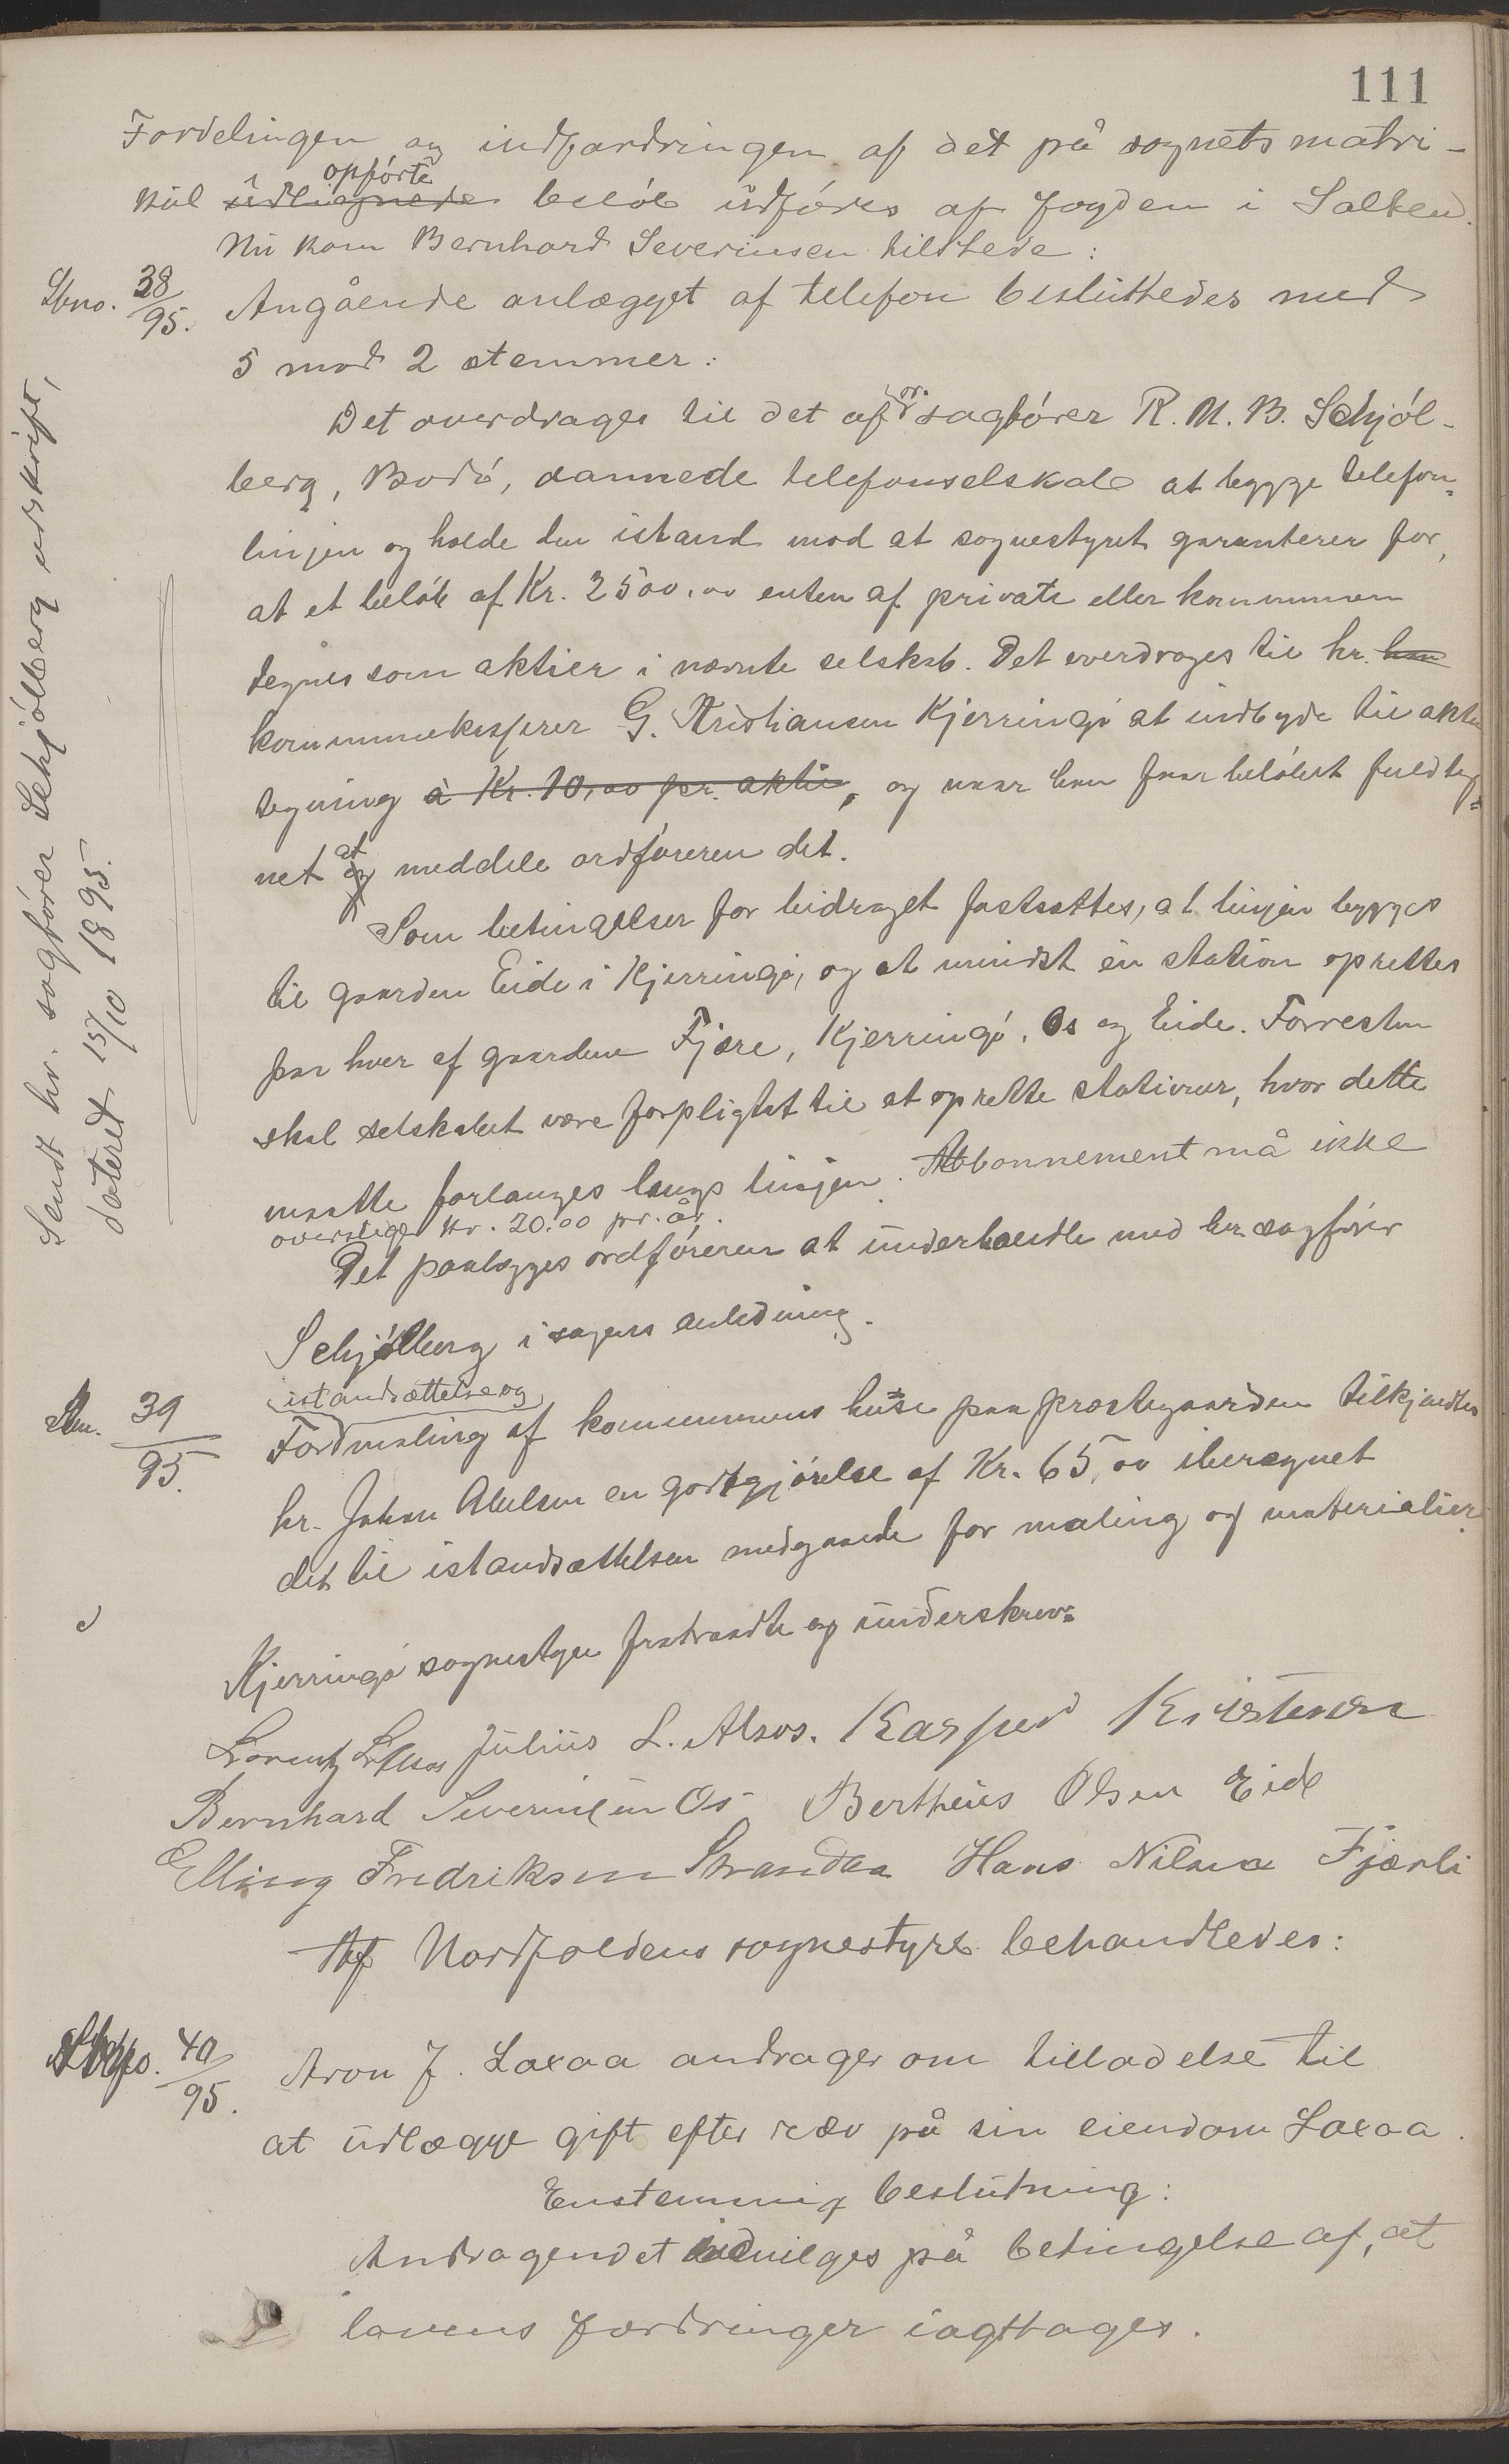 111
Fordelingen og indfordringen af det på sognets matri-
kul udlignede opførte beløb udføres af fogden i Salten.
Nu kom Bernhard Severinsen tilstede:
Sbno. 38/95. Angående anlægget af telefon besluttedes med
5 mod 2 stemmer:
Det overdrages til det af or. sagfører R. M. B. Schjøl-
berg, Bodø, dannede telefonselskab at bygge telefon-
linjen og holde den istand mod at sognestyret garanterer for,
at et beløb af Kr. 2500.00 enten af private eller kommunen
tegnes som aktier i nævnte selskab. Det overdrages til hr. han
kommunekasserer G. Kristiansen Kjerringø at indbyde til aktie
tegning à Kr. 10,00 pr. aktie, og naar han faar beløbet fuldteg-
net og at meddele ordføreren det.
Som betingelser for bidraget fastsattes, at linjen bygges
til gaarden Eide i Kjerringø, og at mindst én station oprettes
paa hver af gaardene Fjære, Kjerringø, Os og Eide. Forresten
skal selskabet være forpligtet til at oprette stationer, hvor dette
maatte forlanges langs linjen. Abbonnement må ikke
overstige Kr. 20.00 pr. år.
Det paalægges ordføreren at underhandle med hr. sagfører
Schjølberg i sagens anledning.
Sendt hr. sagfører Schjølberg udskrift,
dateret 15/10 1895.
istandsættelse og
39/95. For maling af kommunens huse paa præstegaarden tilkjendtes
hr. Johan Abelsen en godtgjørelse af Kr. 65,00 iberegnet
det til istandsættelsen medgaaede for maling og materialier.
Kjerringø sognestyre fratraadte og underskrev:
Lorentz Julius L. Alsos. Kasper Kristensen
Bernhard Severinsen Os Bertheus Olsen Eide
Elling Fredriksen Strandaa Hans Nilsen Fjærli
Af Nordfoldens sognestyre behandledes:
Sbno. 40/95. Aron J. Laxaa andrager om tilladelse til
at udlægge gift efter ræv på sin eiendom Laxaa.
Enstemmig beslutning:
Andragendet bevilges på betingelse af, at
lovens fordringer iagttages.